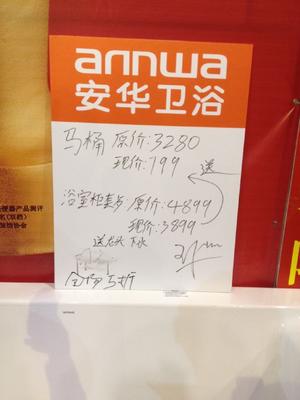 annwa
安华卫浴
马桶 原价:3280
现价:799
送
浴室柜套 原价:4899
现价:3899
送龙头 下水
全场5折